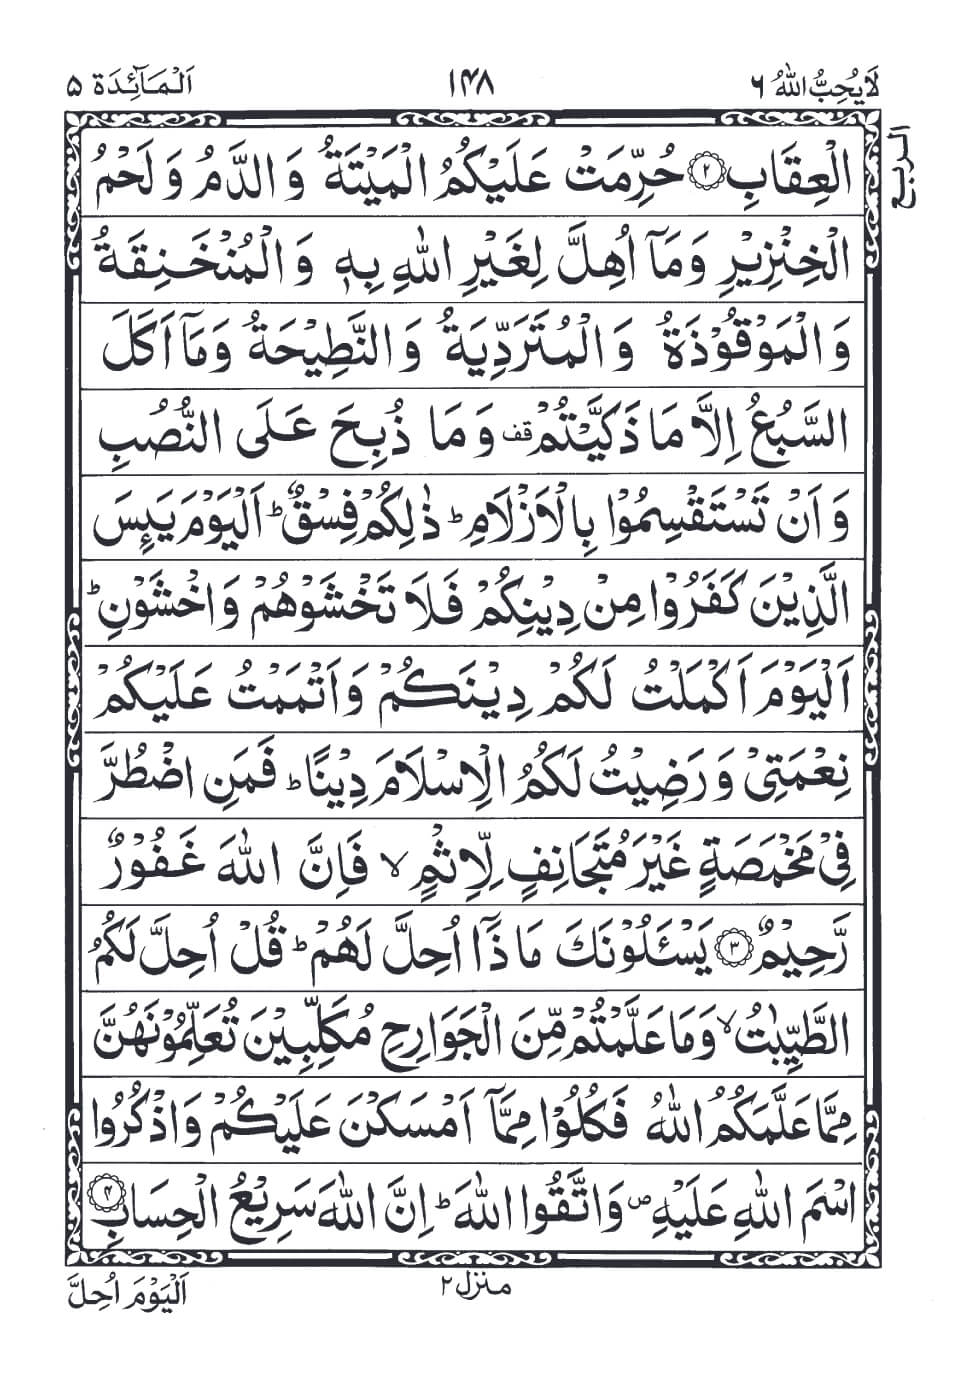 لَا يُحِبُّ اللّٰهُ ٦
١٤٨
اَلْمَآئِدَة ٥
الربع
الْعِقَابِ ﴿٢﴾ حُرِّمَتْ عَلَيْكُمُ الْمَيْتَةُ وَ الدَّمُ وَ لَحْمُ
الْخِنْزِيْرِ وَ مَاۤ اُهِلَّ لِغَيْرِ اللّٰهِ بِهٖ وَ الْمُنْخَنِقَةُ
وَ الْمَوْقُوْذَةُ وَ الْمُتَرَدِّيَةُ وَ النَّطِيْحَةُ وَ مَاۤ اَكَلَ
السَّبُعُ اِلَّا مَا ذَكَّيْتُمْ قف وَ مَا ذُبِحَ عَلَى النُّصُبِ
وَ اَنْ تَسْتَقْسِمُوْا بِالْاَزْلَامِ ؕ ذٰلِكُمْ فِسْقٌ ؕ اَلْيَوْمَ يَىِٕسَ
الَّذِيْنَ كَفَرُوْا مِنْ دِيْنِكُمْ فَلَا تَخْشَوْهُمْ وَ اخْشَوْنِ ؕ
اَلْيَوْمَ اَكْمَلْتُ لَكُمْ دِيْنَكُمْ وَ اَتْمَمْتُ عَلَيْكُمْ
نِعْمَتِيْ وَ رَضِيْتُ لَكُمُ الْاِسْلَامَ دِيْنًا ؕ فَمَنِ اضْطُرَّ
فِيْ مَخْمَصَةٍ غَيْرَ مُتَجَانِفٍ لِّاِثْمٍ ۙ فَاِنَّ اللّٰهَ غَفُوْرٌ
رَّحِيْمٌ ﴿٣﴾ يَسْـَٔلُوْنَكَ مَا ذَاۤ اُحِلَّ لَهُمْ ؕ قُلْ اُحِلَّ لَكُمُ
الطَّيِّبٰتُ ۙ وَ مَا عَلَّمْتُمْ مِّنَ الْجَوَارِحِ مُكَلِّبِيْنَ تُعَلِّمُوْنَهُنَّ
مِمَّا عَلَّمَكُمُ اللّٰهُ فَكُلُوْا مِمَّاۤ اَمْسَكْنَ عَلَيْكُمْ وَ اذْكُرُوا
اسْمَ اللّٰهِ عَلَيْهِ ص وَ اتَّقُوا اللّٰهَ ؕ اِنَّ اللّٰهَ سَرِيْعُ الْحِسَابِ ﴿٤﴾
منزل ٢
اَلْيَوْمَ اُحِلَّ